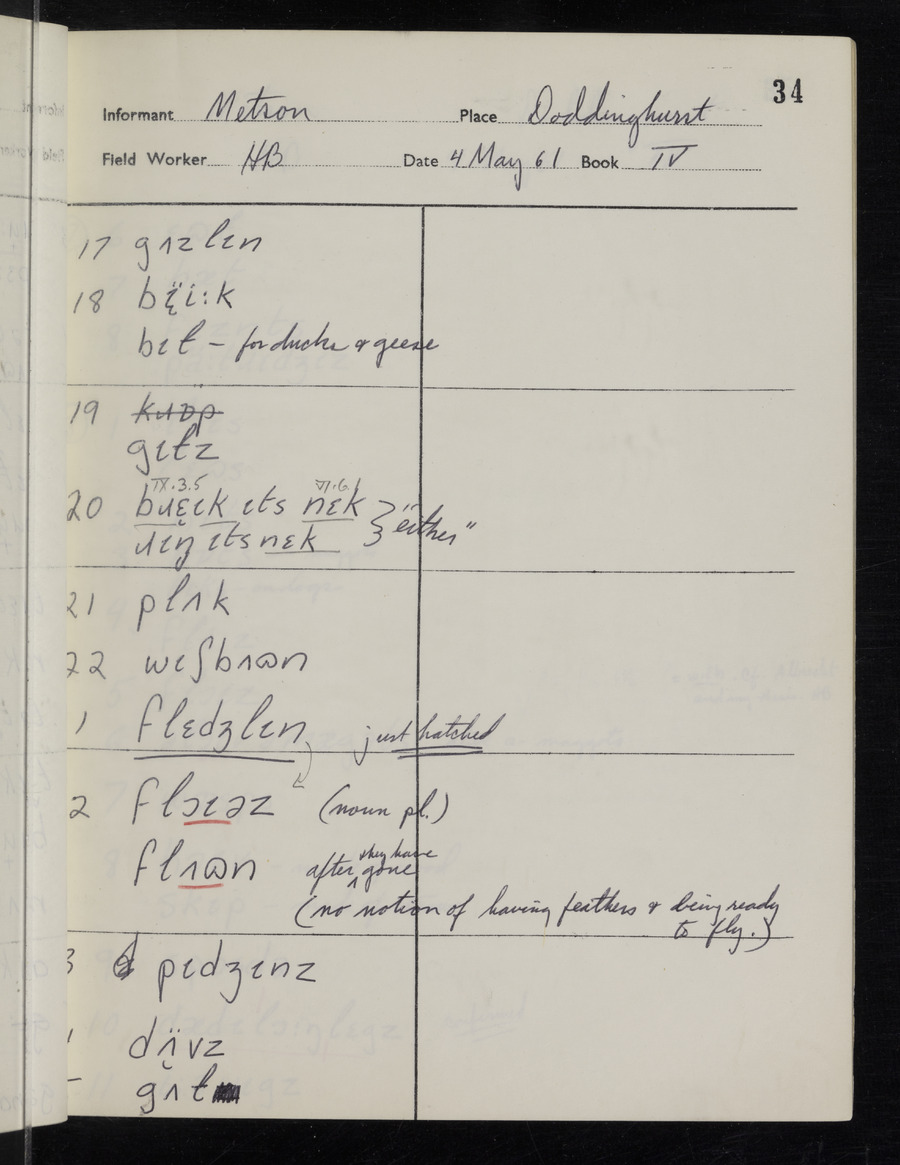 34
Informant Metson Place Doddinghurst
Field Worker HB Date 4 May 61 Book IV
17 gɪzlɪn
18 bɪ̈i:k
bɪt – for ducks & geese
19
gɪtz
IX.3.5 VI.6
20 bɹɛɪk ɪts nɛk } "either"
ɹɪŋ ɪts nɛk
21 plʌk
22 wɪʃbʌɷn
1 flɛdʒlɪn just hatched
2 flɔɪəz (noun pl.)
flʌɷn after they have gone
(no notion of having feathers & being ready
to fly.)
3 pɪdʒɪnz
1 dʌ̈vz
gʌt